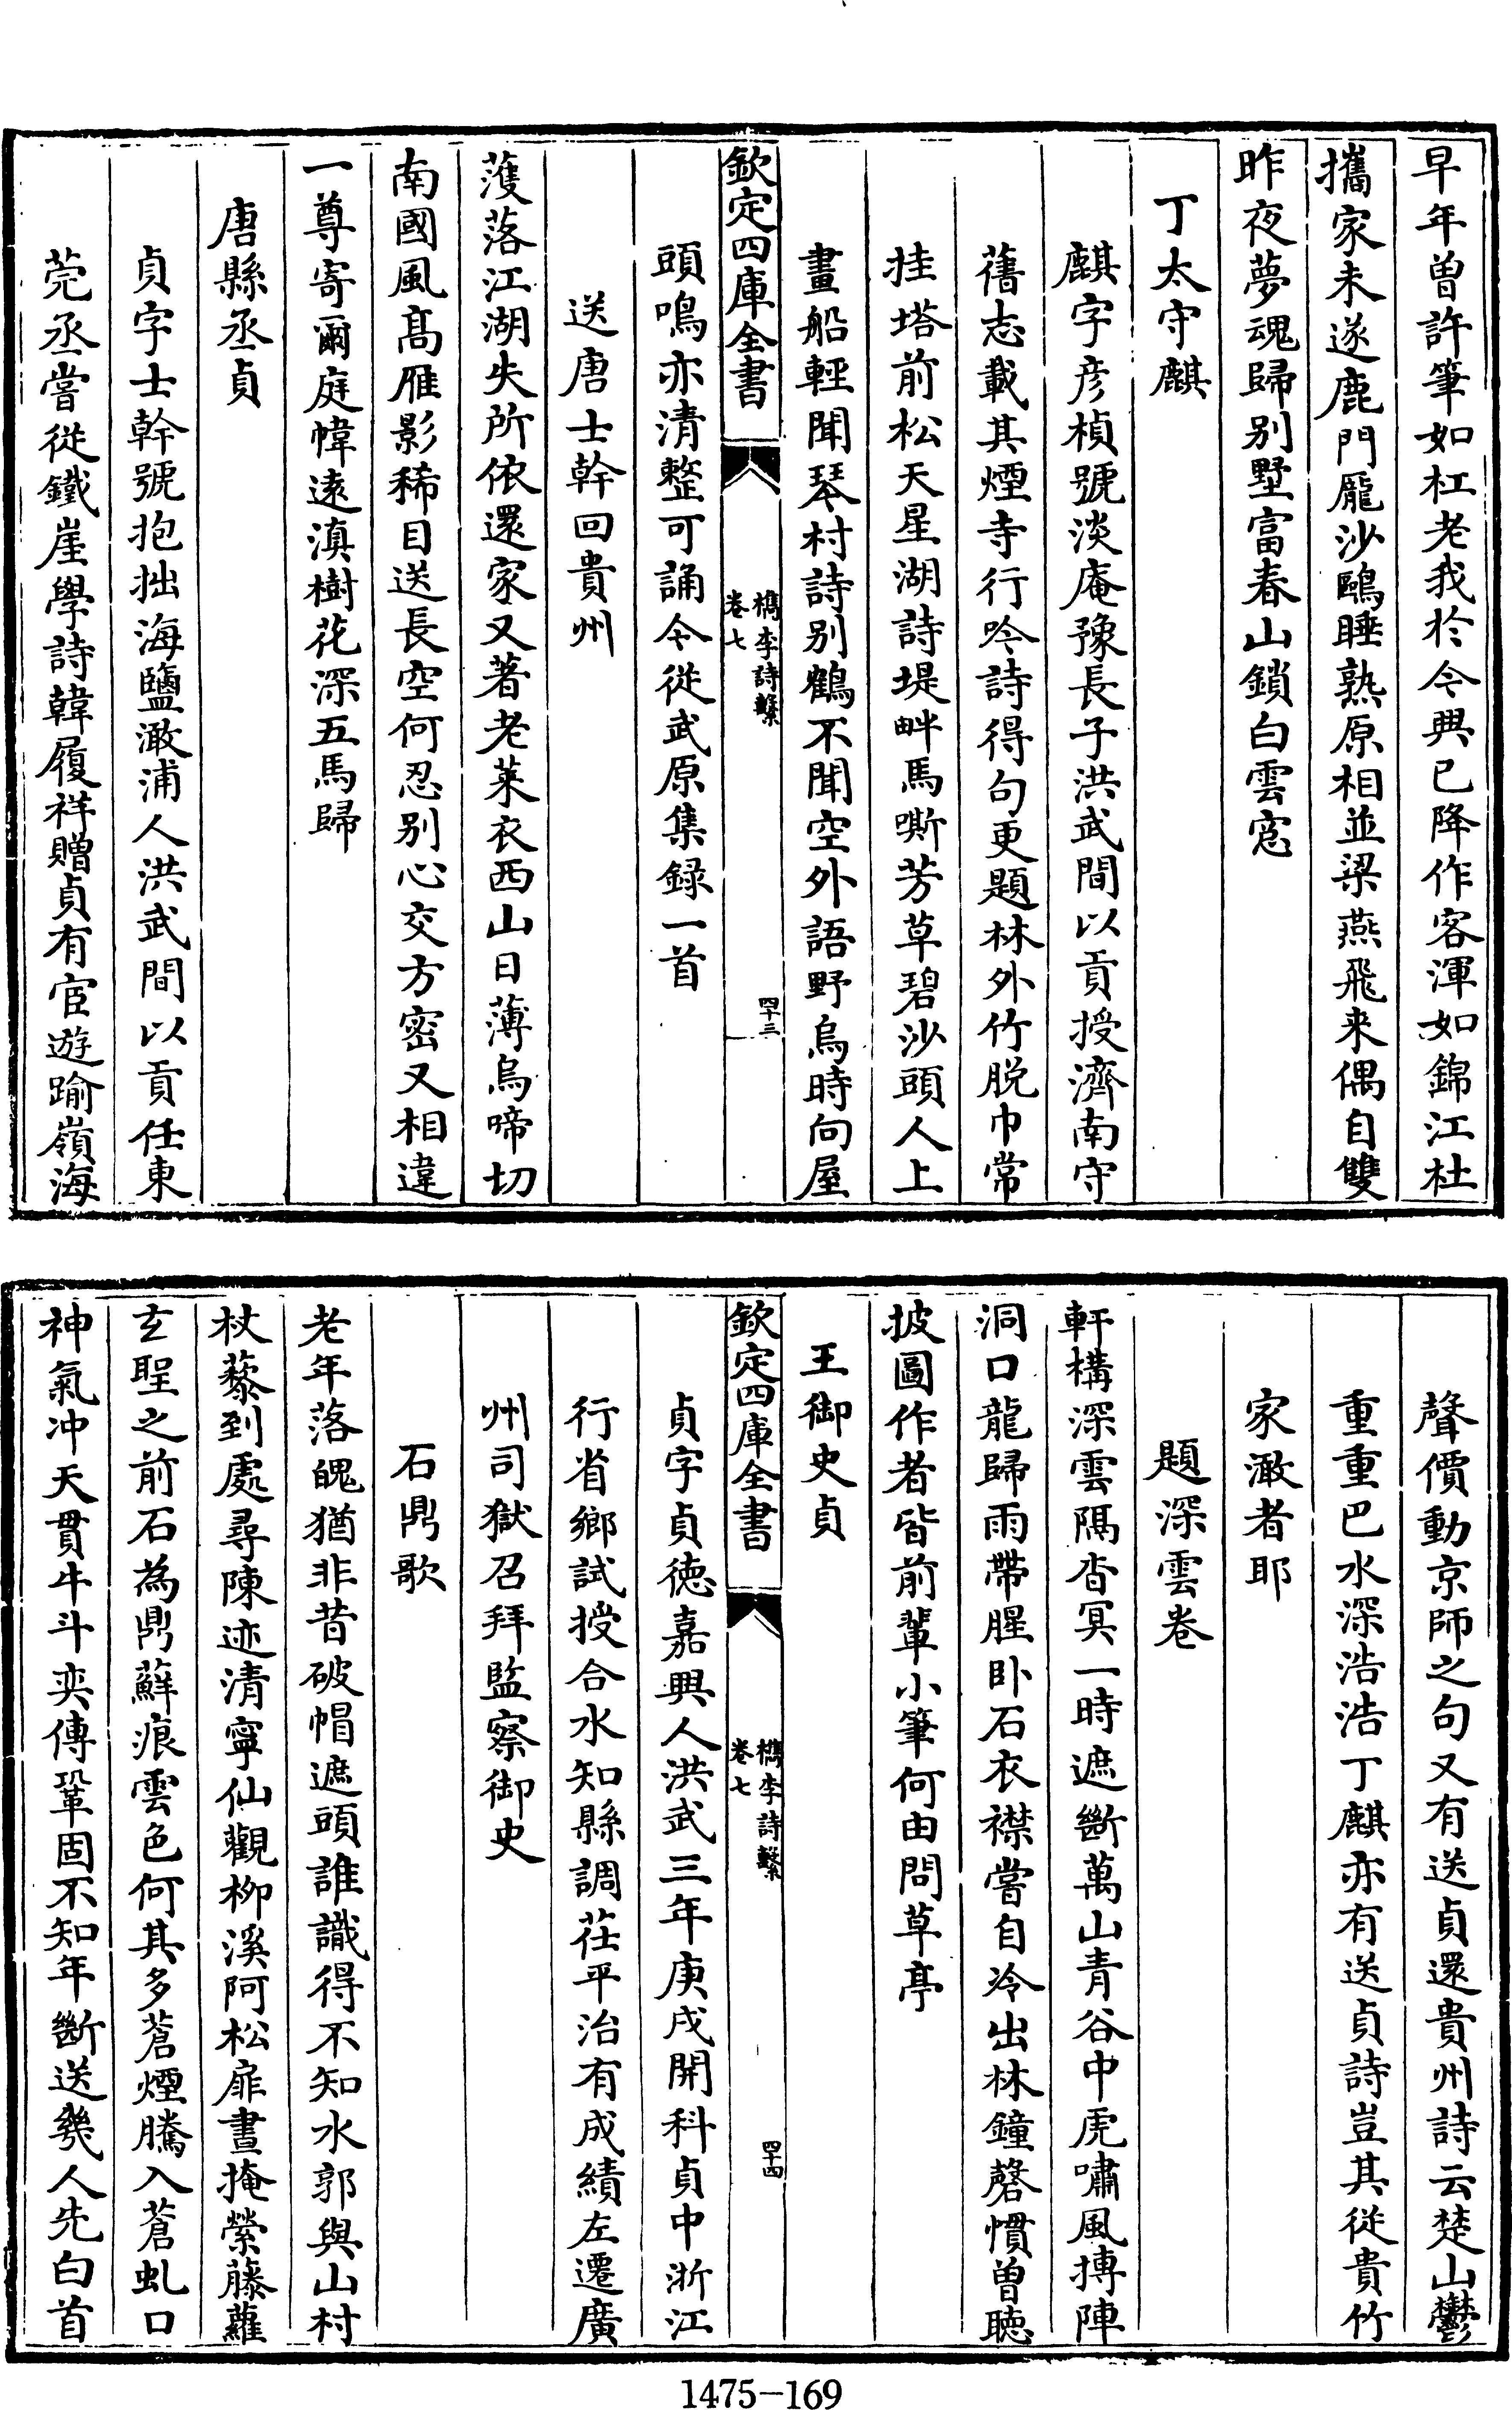 早年曽許筆如杠老我於今興已降作客渾如錦江杜
攜家未遂鹿門龎沙鷗睡熟原相並梁燕飛来偶自雙
昨夜夢魂歸别墅富春山鎖白雲窓
丁太守麒
麒字彦楨號淡庵豫長子洪武間以貢授濟南守
舊志載其煙寺行吟詩得句更題林外竹脱巾常
挂塔前松天星湖詩堤畔馬嘶芳草碧沙頭人上
畫船輕聞琴村詩别鶴不聞空外語野烏時向屋
欽定四庫全書
檇李詩繫
卷七
四十三
頭鳴亦清整可誦今從武原集録一首
送唐士幹回貴州
濩落江湖失所依還家又著老萊衣西山日薄烏啼切
南國風髙雁影稀目送長空何忍别心交方密又相違
一尊寄爾庭幃逺滇樹花深五馬歸
唐縣丞貞
貞字士幹號抱拙海鹽澉浦人洪武間以貢任東
莞丞嘗從鐵崖學詩韓履祥贈貞有宦遊踰嶺海
聲價動京師之句又有送貞還貴州詩云楚山鬱
重重巴水深浩浩丁麒亦有送貞詩豈其從貴竹
家澉者耶
題深雲卷
軒構深雲隔杳冥一時遮斷萬山青谷中虎嘯風摶陣
洞口龍歸雨帶腥卧石衣襟嘗自冷出林鐘磬慣曽聴
披圖作者皆前輩小筆何由問草亭
王御史貞
欽定四庫全書
檇李詩繫
卷七
四十四
貞字貞徳嘉興人洪武三年庚戌開科貞中浙江
行省鄉試授合水知縣調茌平治有成績左遷廣
州司獄召拜監察御史
石鼎歌
老年落魄猶非昔破帽遮頭誰識得不知水郭與山村
杖藜到處尋陳迹清寧仙觀栁溪阿松扉晝掩縈藤蘿
玄聖之前石為鼎蘚痕雲色何其多蒼煙騰入蒼虬口
神氣冲天貫牛斗奕傳鞏固不知年斷送幾人先白首
1475-169